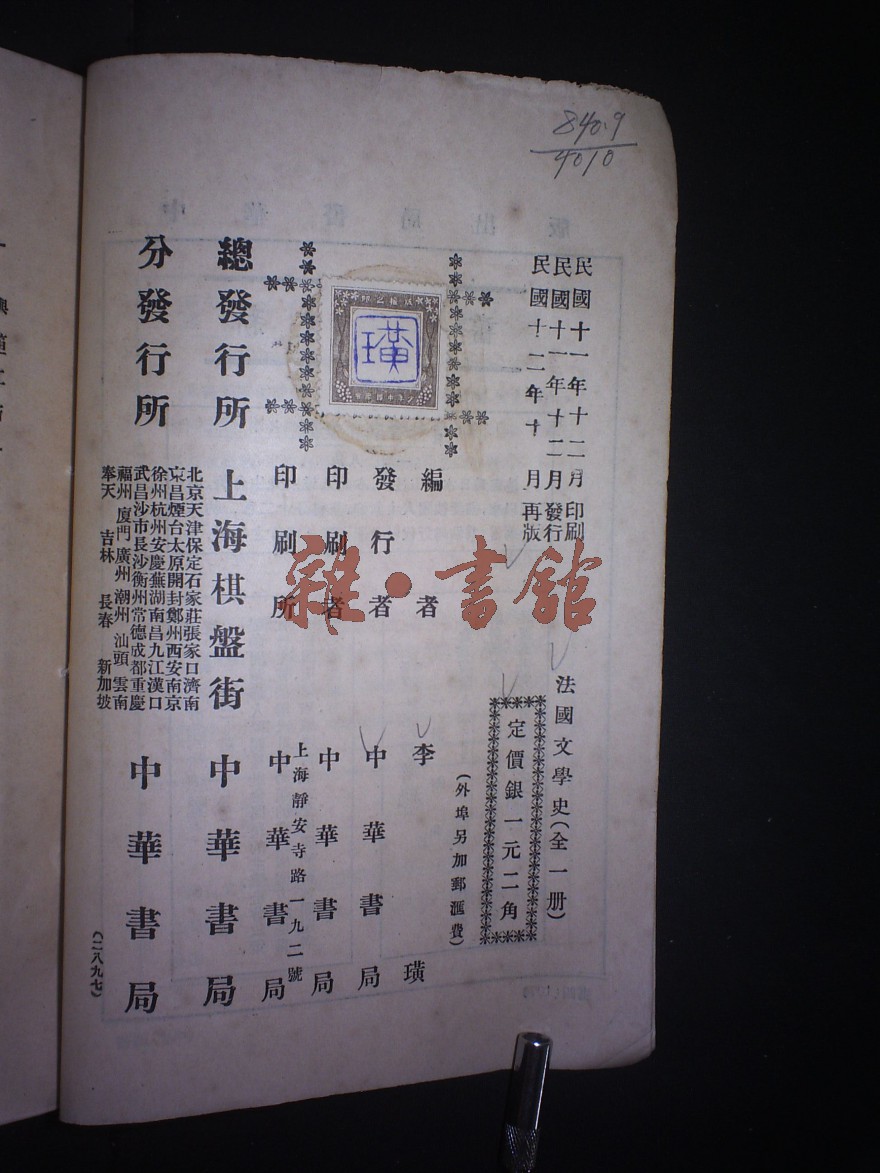 840.9
4010
民國十一年十二月印刷
民國十一年十二月發行
民國十二年十月再版
法國文學史(全一册)
定價銀一元二角
(外埠另加郵滙費)
編者 李璜
發行者 中華書局
印刷者 中華書局
印刷所 上海靜安寺路一九二號 中華書局
璜
總發行所 上海棋盤街 中華書局
分發行所
北京天津保定石家莊張家口濟南
東昌煙台太原開封鄭州西安南京
徐州杭州安慶蕪湖南昌九江漢口
武昌沙市長沙衡州常德成都重慶
福州廈門廣州潮州汕頭雲南
奉天 吉林 長春 新加坡
中華書局
(二八九七)
雜·書館